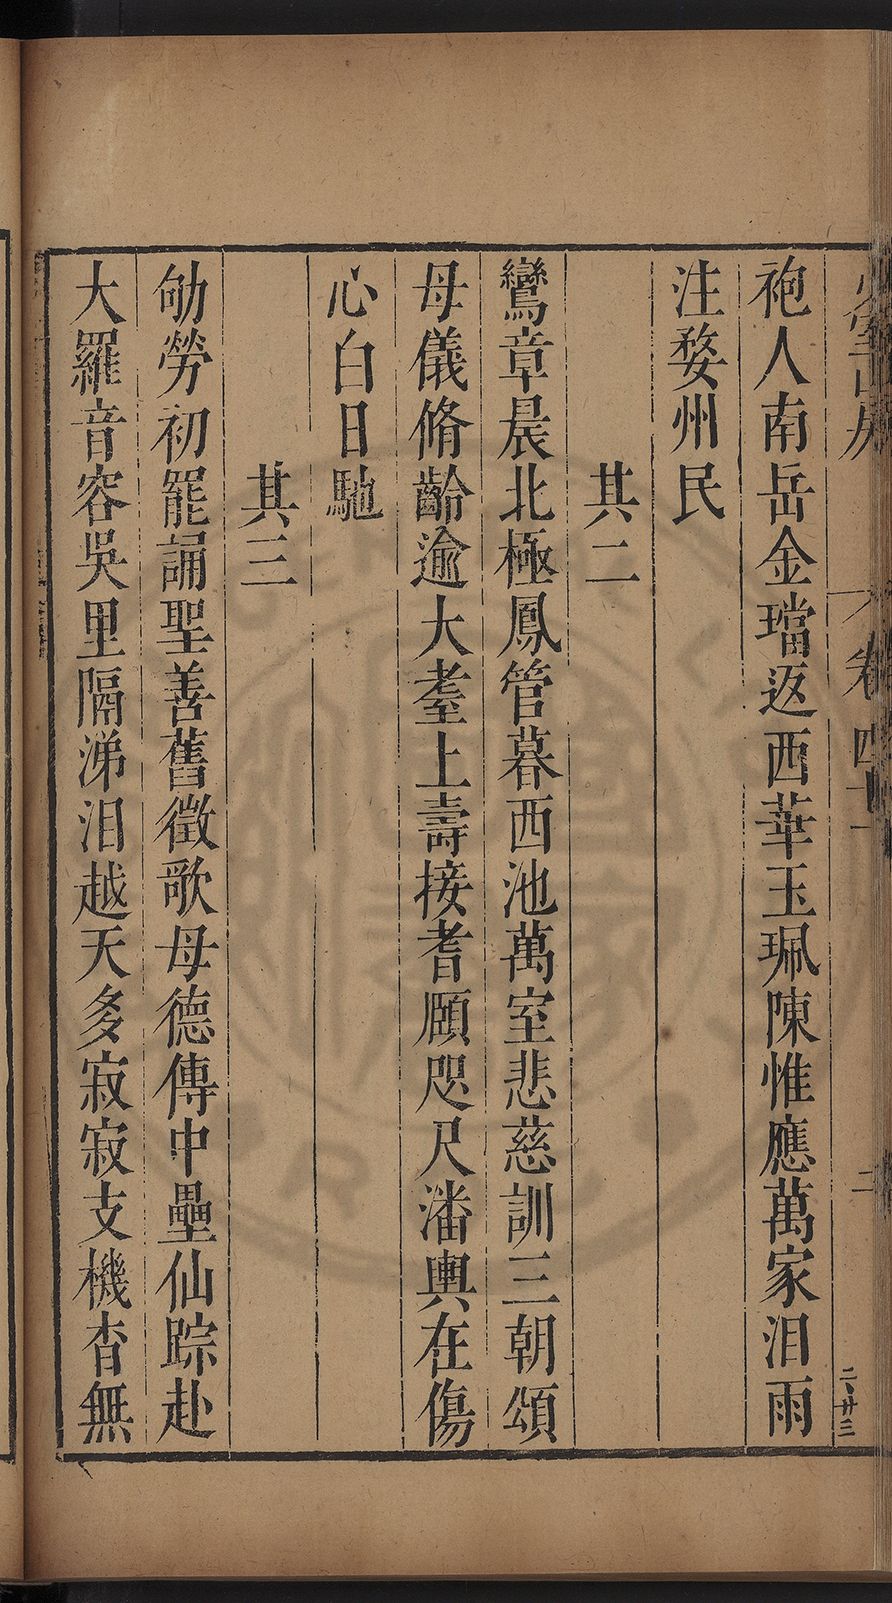 少室山房
卷四十一
二
二、廿三
袍人南岳金璫返西華玉珮陳惟應萬家泪雨
注婺州民
其二
鸞章晨北極鳳管暮西池萬室悲慈訓三朝頌
母儀脩齡逾大耋上壽接耆頤咫尺潘輿在傷
心白日馳
其三
劬勞初罷誦聖善舊徵歌母德傳中壘仙踪赴
大羅音容吳里隔涕泪越天多寂寂支機杳無